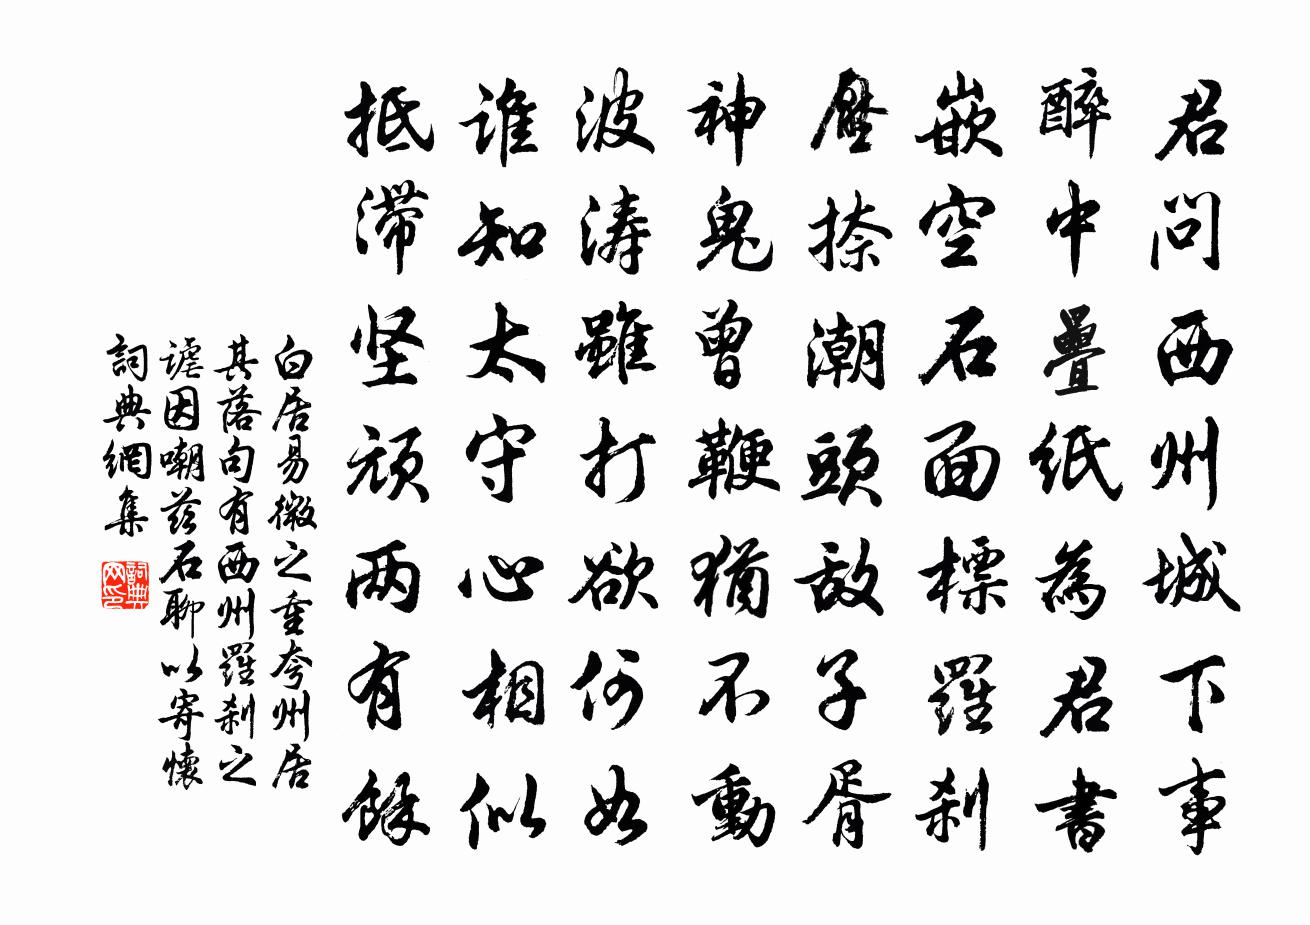 君问西州城下事
醉中疊纸為君書
嵌空石面標羅刹
壓捺潮頭敵子胥
神鬼曾鞭猶不動
波涛雖打欲何如
谁知太守心相似
抵滞坚顽两有餘
白居易微之重夸州居
其落句有西州羅刹之
谑因嘲茲石聊以寄懷
詞典網集
詞典
网印